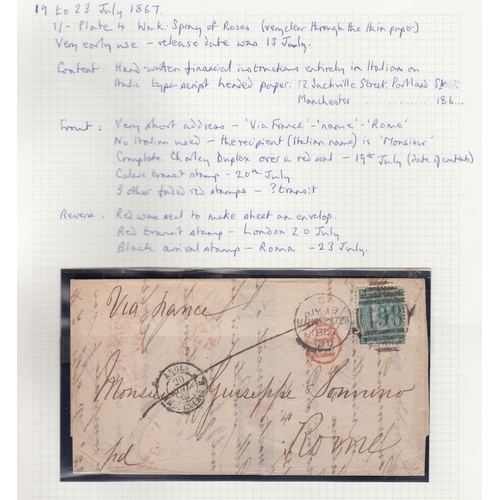 19 to 23 July 1867.
1/- Plate 4 Wmk: Spray of Roses (very clear through the thin paper)
Very early use - release date was 13 July.
Content: Hand-written financial instructions entirely in Italian on
Italic type-script headed paper: 12 Sackville Street, Portland St
Manchester ............... 186...
Front: Very short address - 'Via France' - 'name' - 'Rome'
No Italian used - the recipient (Italian name) is 'Monsieur'
Complete Charley Duplex over a red seal - 19th July (date of contents)
Calais transit stamp - 20th July
3 other faded red stamps - ? transit
Reverse: Red wax seal to make sheet an envelop.
Red transit stamp - London 20 July
Black arrival stamp - Roma - 23 July.
Via france
JY 19
MANCHESTER
186
498
ANGL.
20
Monsieur Giuseppe Sonnino
Rome
pd